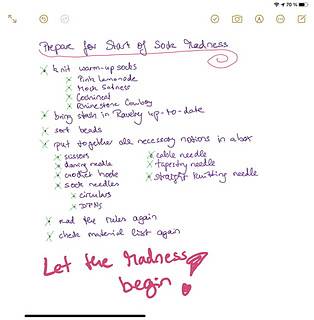 70%
Prepare for Start of Sock Madness
knit warm-up socks
Pink Lemonade
Mock Sadness
Cochineal
Rhinestone Cowboy
bring stash in Ravelry up-to-date
sort beads
put together all necessary notions in a box
scissors
darning needle
crochet hook
sock needles
circulars
DPNs
cable needle
tapestry needle
straight knitting needle
read the rules again
check material list again
Let the Madness
begin!